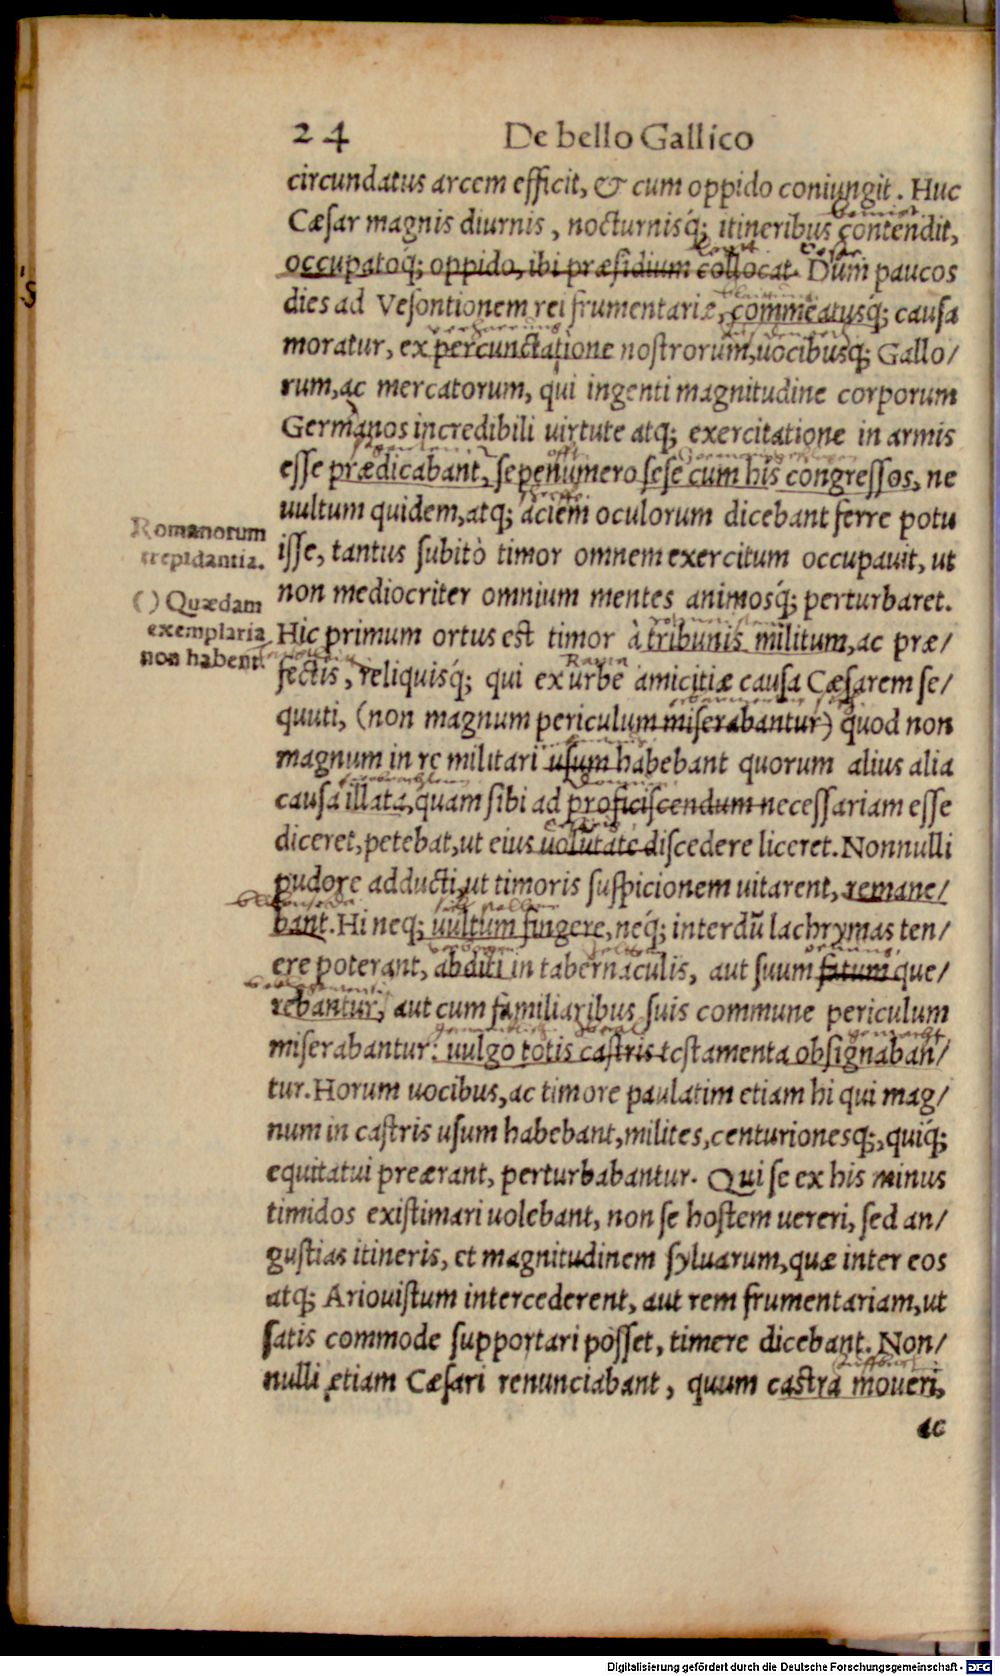 24 De bello Gallico
circundatus arcem efficit, & cum oppido coniungit. Huc
Cæsar magnis diurnis, nocturnisq́; itineribus contendit,
occupatoq́; oppido, ibi præsidium collocat. Dum paucos
dies ad Vesontionem rei frumentariæ, commeatusq́; causa
moratur, ex percunctatione nostrorum, uocibusq́; Gallo/
rum, ac mercatorum, qui ingenti magnitudine corporum
Germanos incredibili uirtute atq; exercitatione in armis
esse prædicabant, sepenumero sese cum his congressos, ne
uultum quidem, atq; aciem oculorum dicebant ferre potu
isse, tantus subitò timor omnem exercitum occupauit, ut
non mediocriter omnium mentes animosq́; perturbaret.
Hic primum ortus est timor à tribunis militum, ac præ/
fectis, reliquisq́; qui ex urbe amicitiæ causa Cæsarem se/
quuti, (non magnum periculum miserabantur) quod non
magnum in re militari usum habebant quorum alius alia
causa illata, quam sibi ad proficiscendum necessariam esse
diceret, petebat, ut eius uolũtate discedere liceret. Nonnulli
pudore adducti, ut timoris suspicionem uitarent, remane/
bant. Hi neq; uultum fingere, neq́; interdũ lachrymas ten/
ere poterant, abditi in tabernaculis, aut suum fatum que/
rebantur, aut cum familiaribus suis commune periculum
miserabantur: uulgo totis castris testamenta obsignaban/
tur. Horum uocibus, ac timore paulatim etiam hi qui mag/
num in castris usum habebant, milites, centurionesq;, quiq́;
equitatui preærant, perturbabantur. Qui se ex his minus
timidos existimari uolebant, non se hostem uereri, sed an/
gustias itineris, et magnitudinem syluarum, quæ inter eos
atq; Ariouistum intercederent, aut rem frumentariam, ut
satis commode supportari posset, timere dicebant. Non/
nulli etiam Cæsari renunciabant, quum castra moueri,
ac
Romanorum
trepidantia.
( ) Quædam
exemplaria
non habent.
Roma
Digitalisierung gefördert durch die Deutsche Forschungsgemeinschaft - DFG